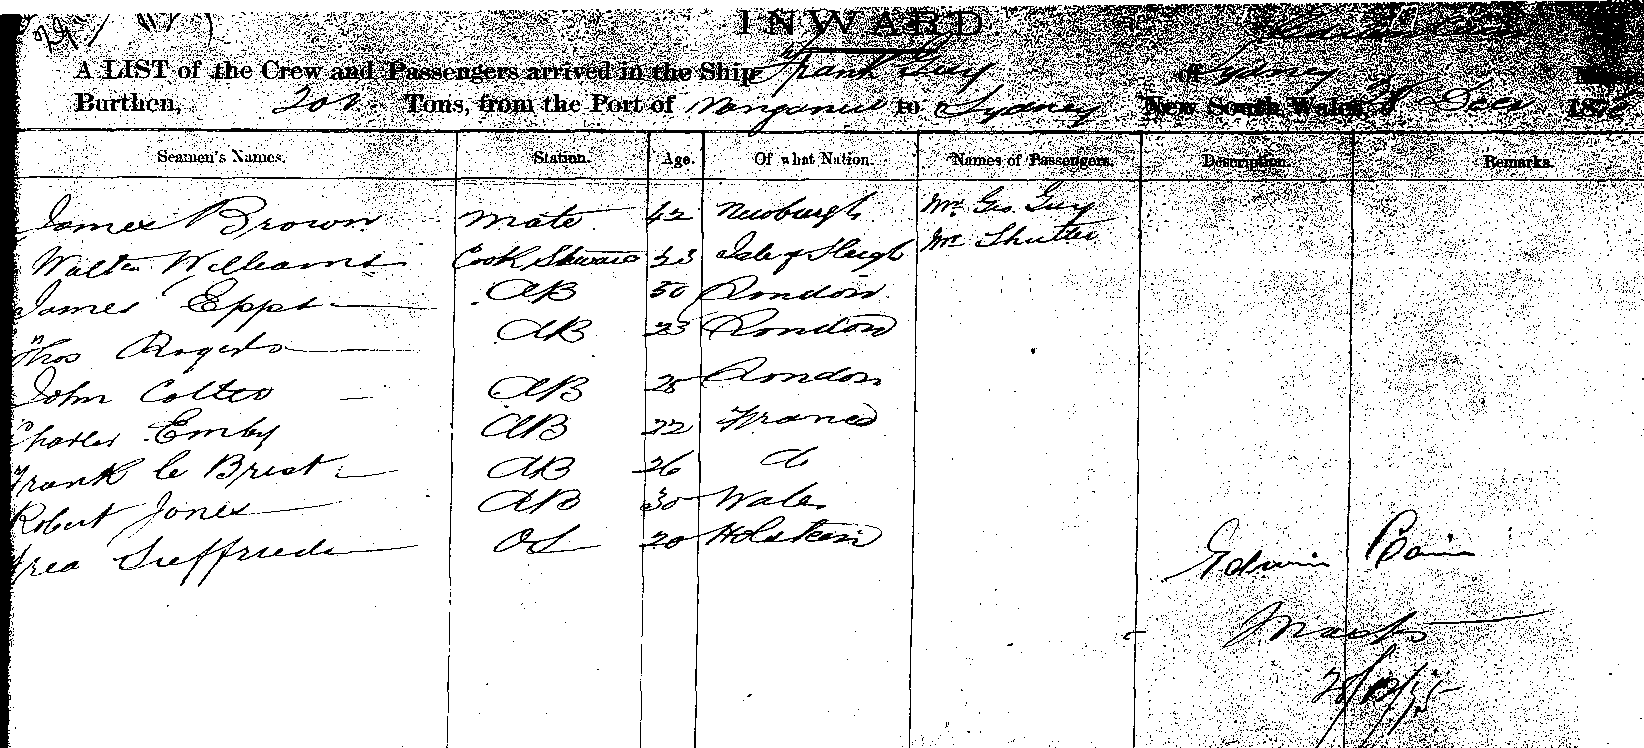 INWARD.
A LIST of the Crew and Passengers arrived in the Ship Frank Guy of Sydney
Burthen, Tons, from the Port of Wanganui to Sydney New South Wales, Decr 187
Seamen's Names. Station. Age. Of what Nation. Names of Passengers. Description. Remarks.
James Brown Mate 42 Newburgh Mr Geo. Guy
Walter Williams Cook Steward 43 Isle of Mr
James Epps AB 50 London
Thos Rogers AB 23 London
John AB 25 London
Charles Emby AB 22 France
Frank le Brest AB 26 do
Robert Jones AB 30 Wales
OS 20 Holstein
Edwin
Master